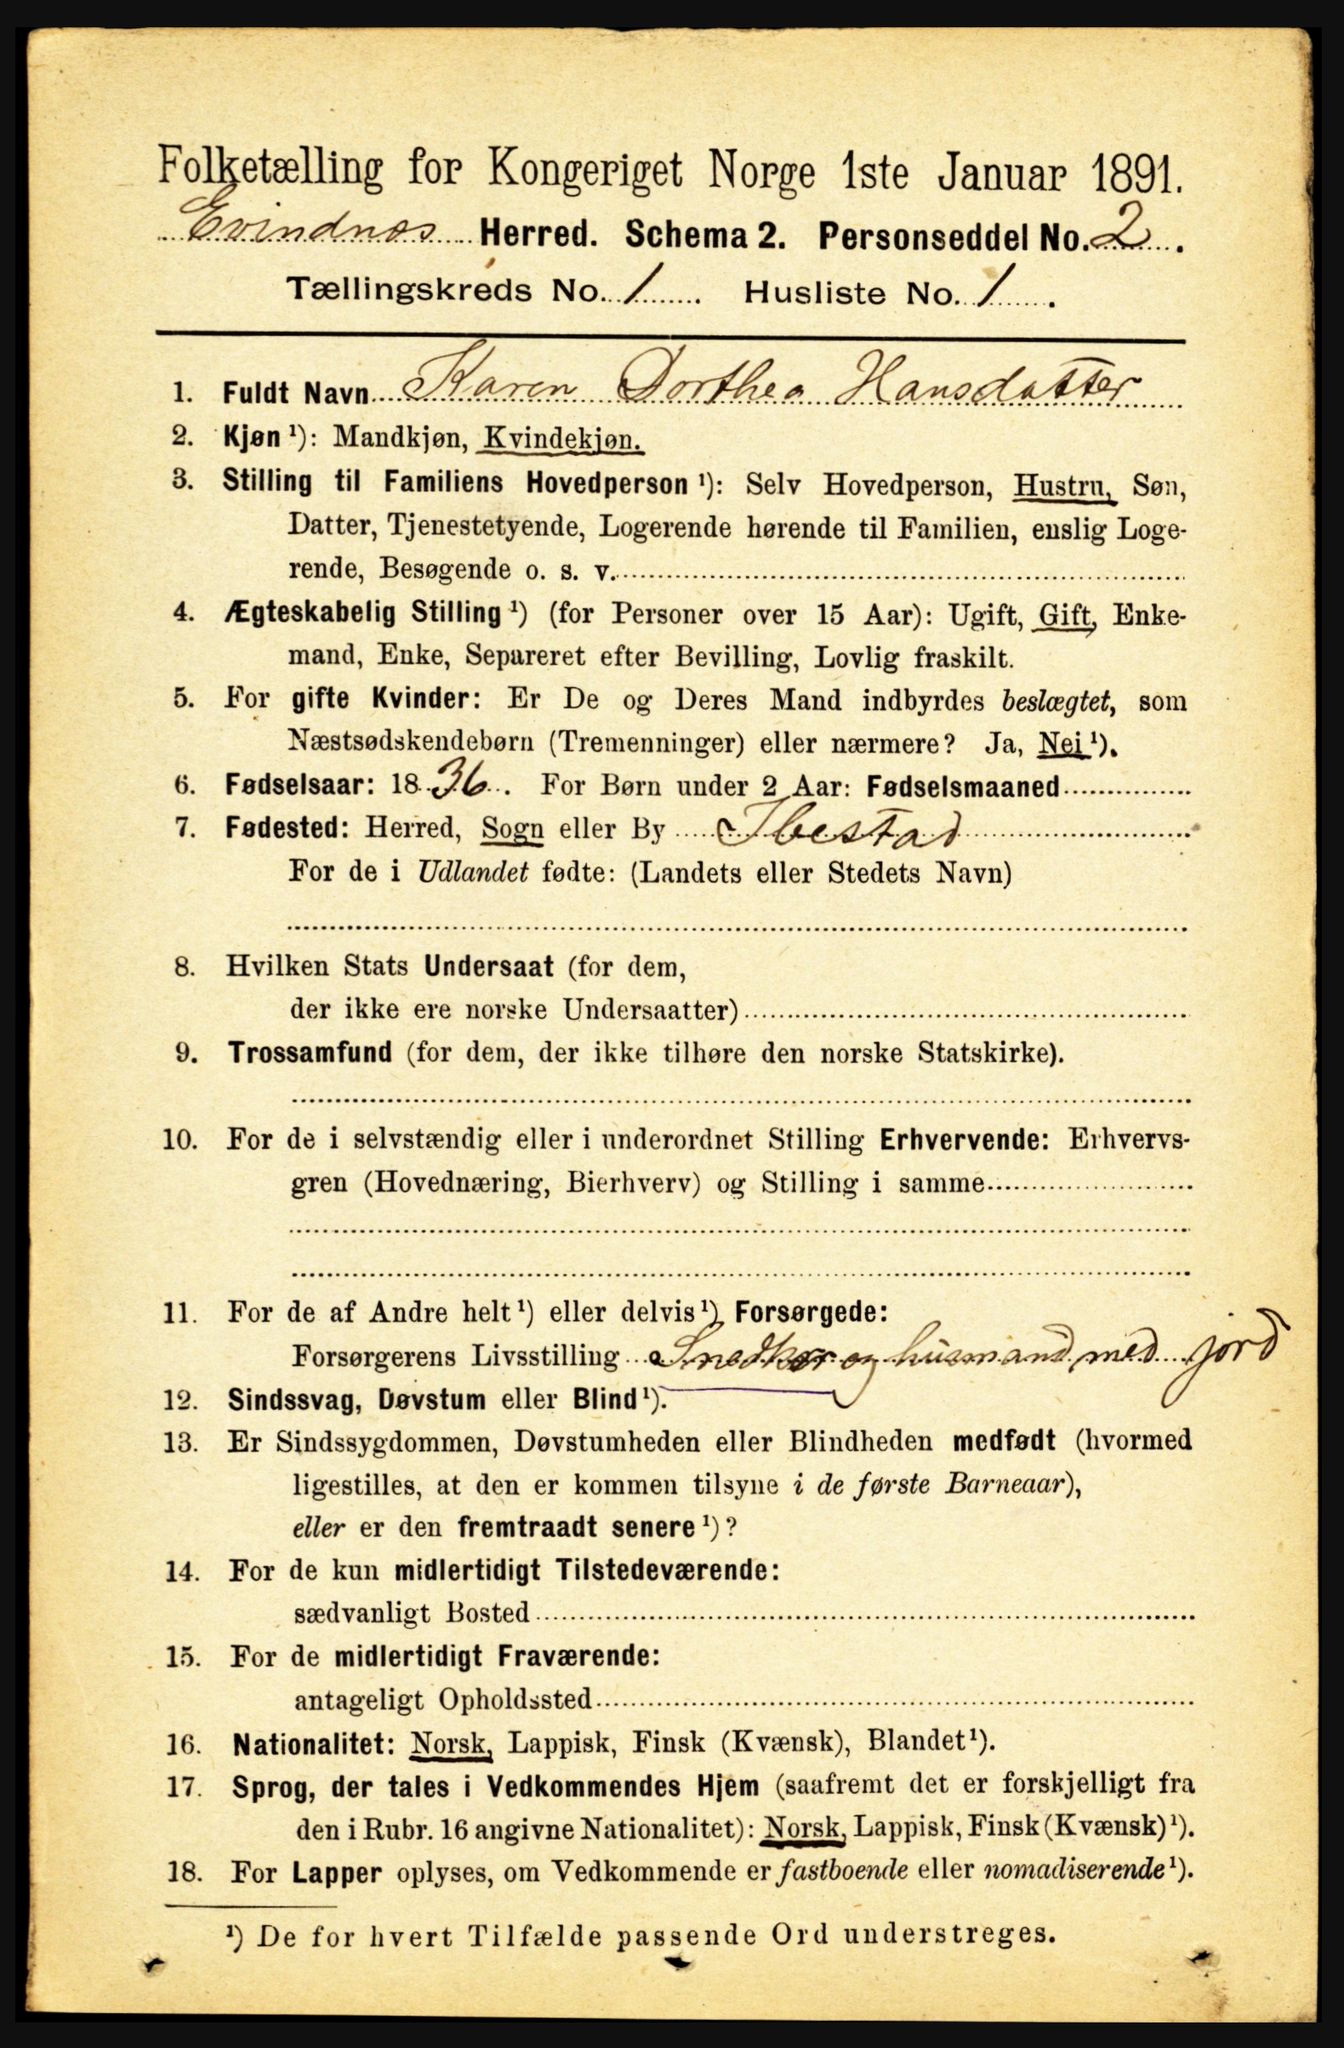 Folketælling for Kongeriget Norge 1ste Januar 1891.
Evindnæs Herred. Schema 2. Personseddel No. 2.
Tællingskreds No. 1. Husliste No. 1.
1. Fuldt Navn Karen Dorthea Hansdatter
2. Kjøn ¹): Mandkjøn, Kvindekjøn.
3. Stilling til Familiens Hovedperson ¹): Selv Hovedperson, Hustru, Søn,
Datter, Tjenestetyende, Logerende hørende til Familien, enslig Loge-
rende, Besøgende o. s. v.
4. Ægteskabelig Stilling ¹) (for Personer over 15 Aar): Ugift, Gift, Enke-
mand, Enke, Separeret efter Bevilling, Lovlig fraskilt.
5. For gifte Kvinder: Er De og Deres Mand indbyrdes beslægtet, som
Næstsødskendebørn (Tremenninger) eller nærmere? Ja, Nei ¹).
6. Fødselsaar: 1836. For Børn under 2 Aar: Fødselsmaaned
7. Fødested: Herred, Sogn eller By Ibestad
For de i Udlandet fødte: (Landets eller Stedets Navn)
8. Hvilken Stats Undersaat (for dem,
der ikke ere norske Undersaatter)
9. Trossamfund (for dem, der ikke tilhøre den norske Statskirke).
10. For de i selvstændig eller i underordnet Stilling Erhvervende: Erhvervs-
gren (Hovednæring, Bierhverv) og Stilling i samme
11. For de af Andre helt ¹) eller delvis ¹) Forsørgede:
Forsørgerens Livsstilling Snedker og husmand med jord
12. Sindssvag, Døvstum eller Blind ¹).
13. Er Sindssygdommen, Døvstumheden eller Blindheden medfødt (hvormed
ligestilles, at den er kommen tilsyne i de første Barneaar),
eller er den fremtraadt senere ¹)?
14. For de kun midlertidigt Tilstedeværende:
sædvanligt Bosted
15. For de midlertidigt Fraværende:
antageligt Opholdssted
16. Nationalitet: Norsk, Lappisk, Finsk (Kvænsk), Blandet ¹).
17. Sprog, der tales i Vedkommendes Hjem (saafremt det er forskjelligt fra
den i Rubr. 16 angivne Nationalitet): Norsk, Lappisk, Finsk (Kvænsk) ¹).
18. For Lapper oplyses, om Vedkommende er fastboende eller nomadiserende ¹).
¹) De for hvert Tilfælde passende Ord understreges.